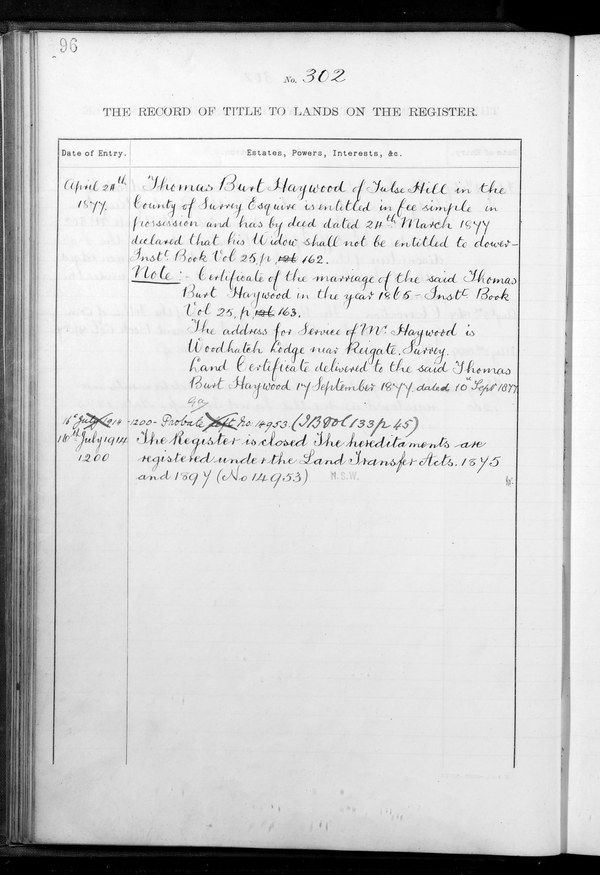 96
No. 302
THE RECORD OF TITLE TO LANDS ON THE REGISTER.
Date of Entry.
Estates, Powers, Interests, &c.
April 24th 1877.
Thomas Burt Haywood of Tulse Hill in the
County of Surrey Esquire is entitled in fee simple in
possession and has by deed dated 24th March 1877
declared that his Widow shall not be entitled to dower -
Instt. Book Vol 25, p. 162.
Note :- Certificate of the marriage of the said Thomas
Burt Haywood in the year 1865 - Instt. Book
Vol 25, p. 163.
The address for Service of Mr. Haywood is
Woodhatch Lodge near Reigate, Surrey.
Land Certificate delivered to the said Thomas
Burt Haywood 17 September 1877, dated 10th Sept 1877
16th July 1914 - 1200 - Probate left No 14953. (I B Vol 133 p 45)
16th July 1914
1200
The Register is closed The hereditaments are
registered under the Land Transfer Acts. 1875
and 1897 (No 14953)
M.S.W.